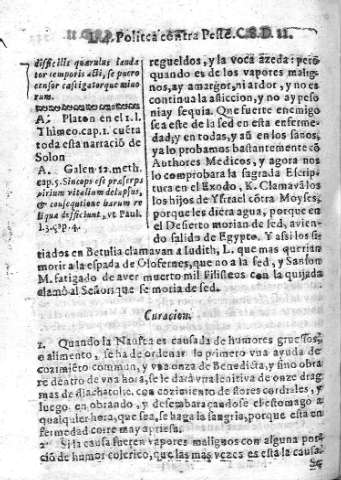 Politca cõtra Peste. C.S.D. 11.
difficilis quærulus lauda
tor temporis acti, se puero
censor castigatorque mino
rum.
A. Platon en el t. l.
Thimeo. cap. 1. cuẽta
toda esta narració de
Solon
A. Galen 12. meth.
cap. 5. Sincopis est præceps
virium vitalium delapsus,
& consequutione harum re
liqua difficiunt, vt Paul.
l. 3. cap. 4.
regueldos, y la voca azeda: pero
quando es de los vapores malig-
nos, ay amargor, ni ardor, y no es
continua la afliccion, y no ay peso
ni ay sequia. Que fuerte enemigo
sea este de la sed en esta enferme-
dad, y en todas, y aũ en los sanos,
ya lo probamos bastantemente cõ
Authores Medicos, y agora nos
lo comprobara la sagrada Escrip-
tura en el Exodo, K. Clamavã los
los hijos de Ysrael cõtra Moyses,
porque les diera agua, porque en
el Desierto morian de sed, avien-
do salido de Egypto. Y assi los si-
tiados en Betulia clamavan a Iudith, L. que mas querrian
morir a la espada de Olofernes, que no a la sed, y Sanson
M. fatigado de aver muerto mil Filisteos con la quijada
clamò al Señor que se moria de sed.
Curacion.
1. Quando la Nausea es causada de humores gruessos,
o alimento, se ha de ordenar lo primero vna ayuda de
cozimiẽto commun, y vna onza de Benedicta, y sino obra
re dentro de vna hora, se le darà vna lenitiva de onze drag
mas de diacatolic. con cozimiento de flores cordiales, y
luego en obrando, y desembaraçandose el estomago a
qualquier hora, que sea, se haga la sangria, porque esta en
fermedad corre muy apriesa.
2. Si la causa fueren vapores malignos con alguna por
ciõ de humor colerico, que las mas vezes es esta la causa.